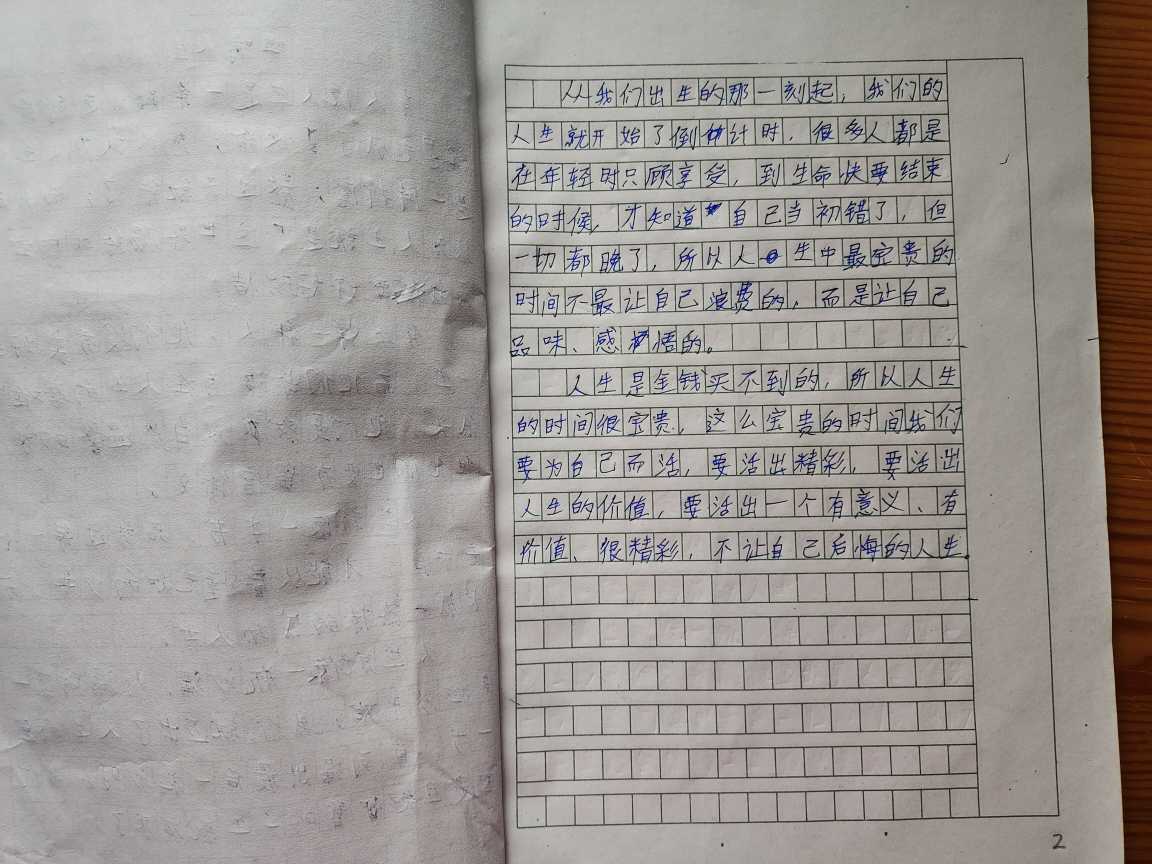 从我们出生的那一刻起，我们的
人生就开始了倒计时，很多人都是
在年轻时只顾享受，到生命快要结束
的时候，才知道自己当初错了，但
一切都晚了，所以人生中最宝贵的
时间不最让自己浪费的，而是让自己
品味、感悟的。
人生是金钱买不到的，所以人生
的时间很宝贵，这么宝贵的时间我们
要为自己而活，要活出精彩，要活出
人生的价值，要活出一个有意义、有
价值、很精彩，不让自己后悔的人生。
2